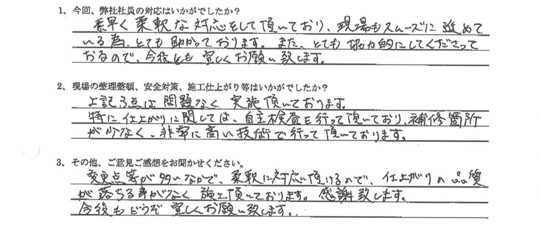 1、今回、弊社社員の対応はいかがでしたか？
素早く柔軟な対応をして頂いており、現場もスムーズに進めて
いる為、とても助かっております。また、とても協力的にしてくださって
おるので、今後とも宜しくお願い致します。
2、現場の整理整頓、安全対策、施工仕上がり等はいかがでしたか？
上記3点は問題なく実施頂いております。
特に仕上がりに関しては、自主検査を行って頂いており、補修箇所
が少なく、非常に高い技術で行って頂いております。
3、その他、ご意見ご感想をお聞かせください。
変更点等が多いなかで、柔軟に対応頂けるので、仕上がりの品質
が落ちる事がなく施工頂いております。感謝致します。
今後もどうぞ宜しくお願い致します。